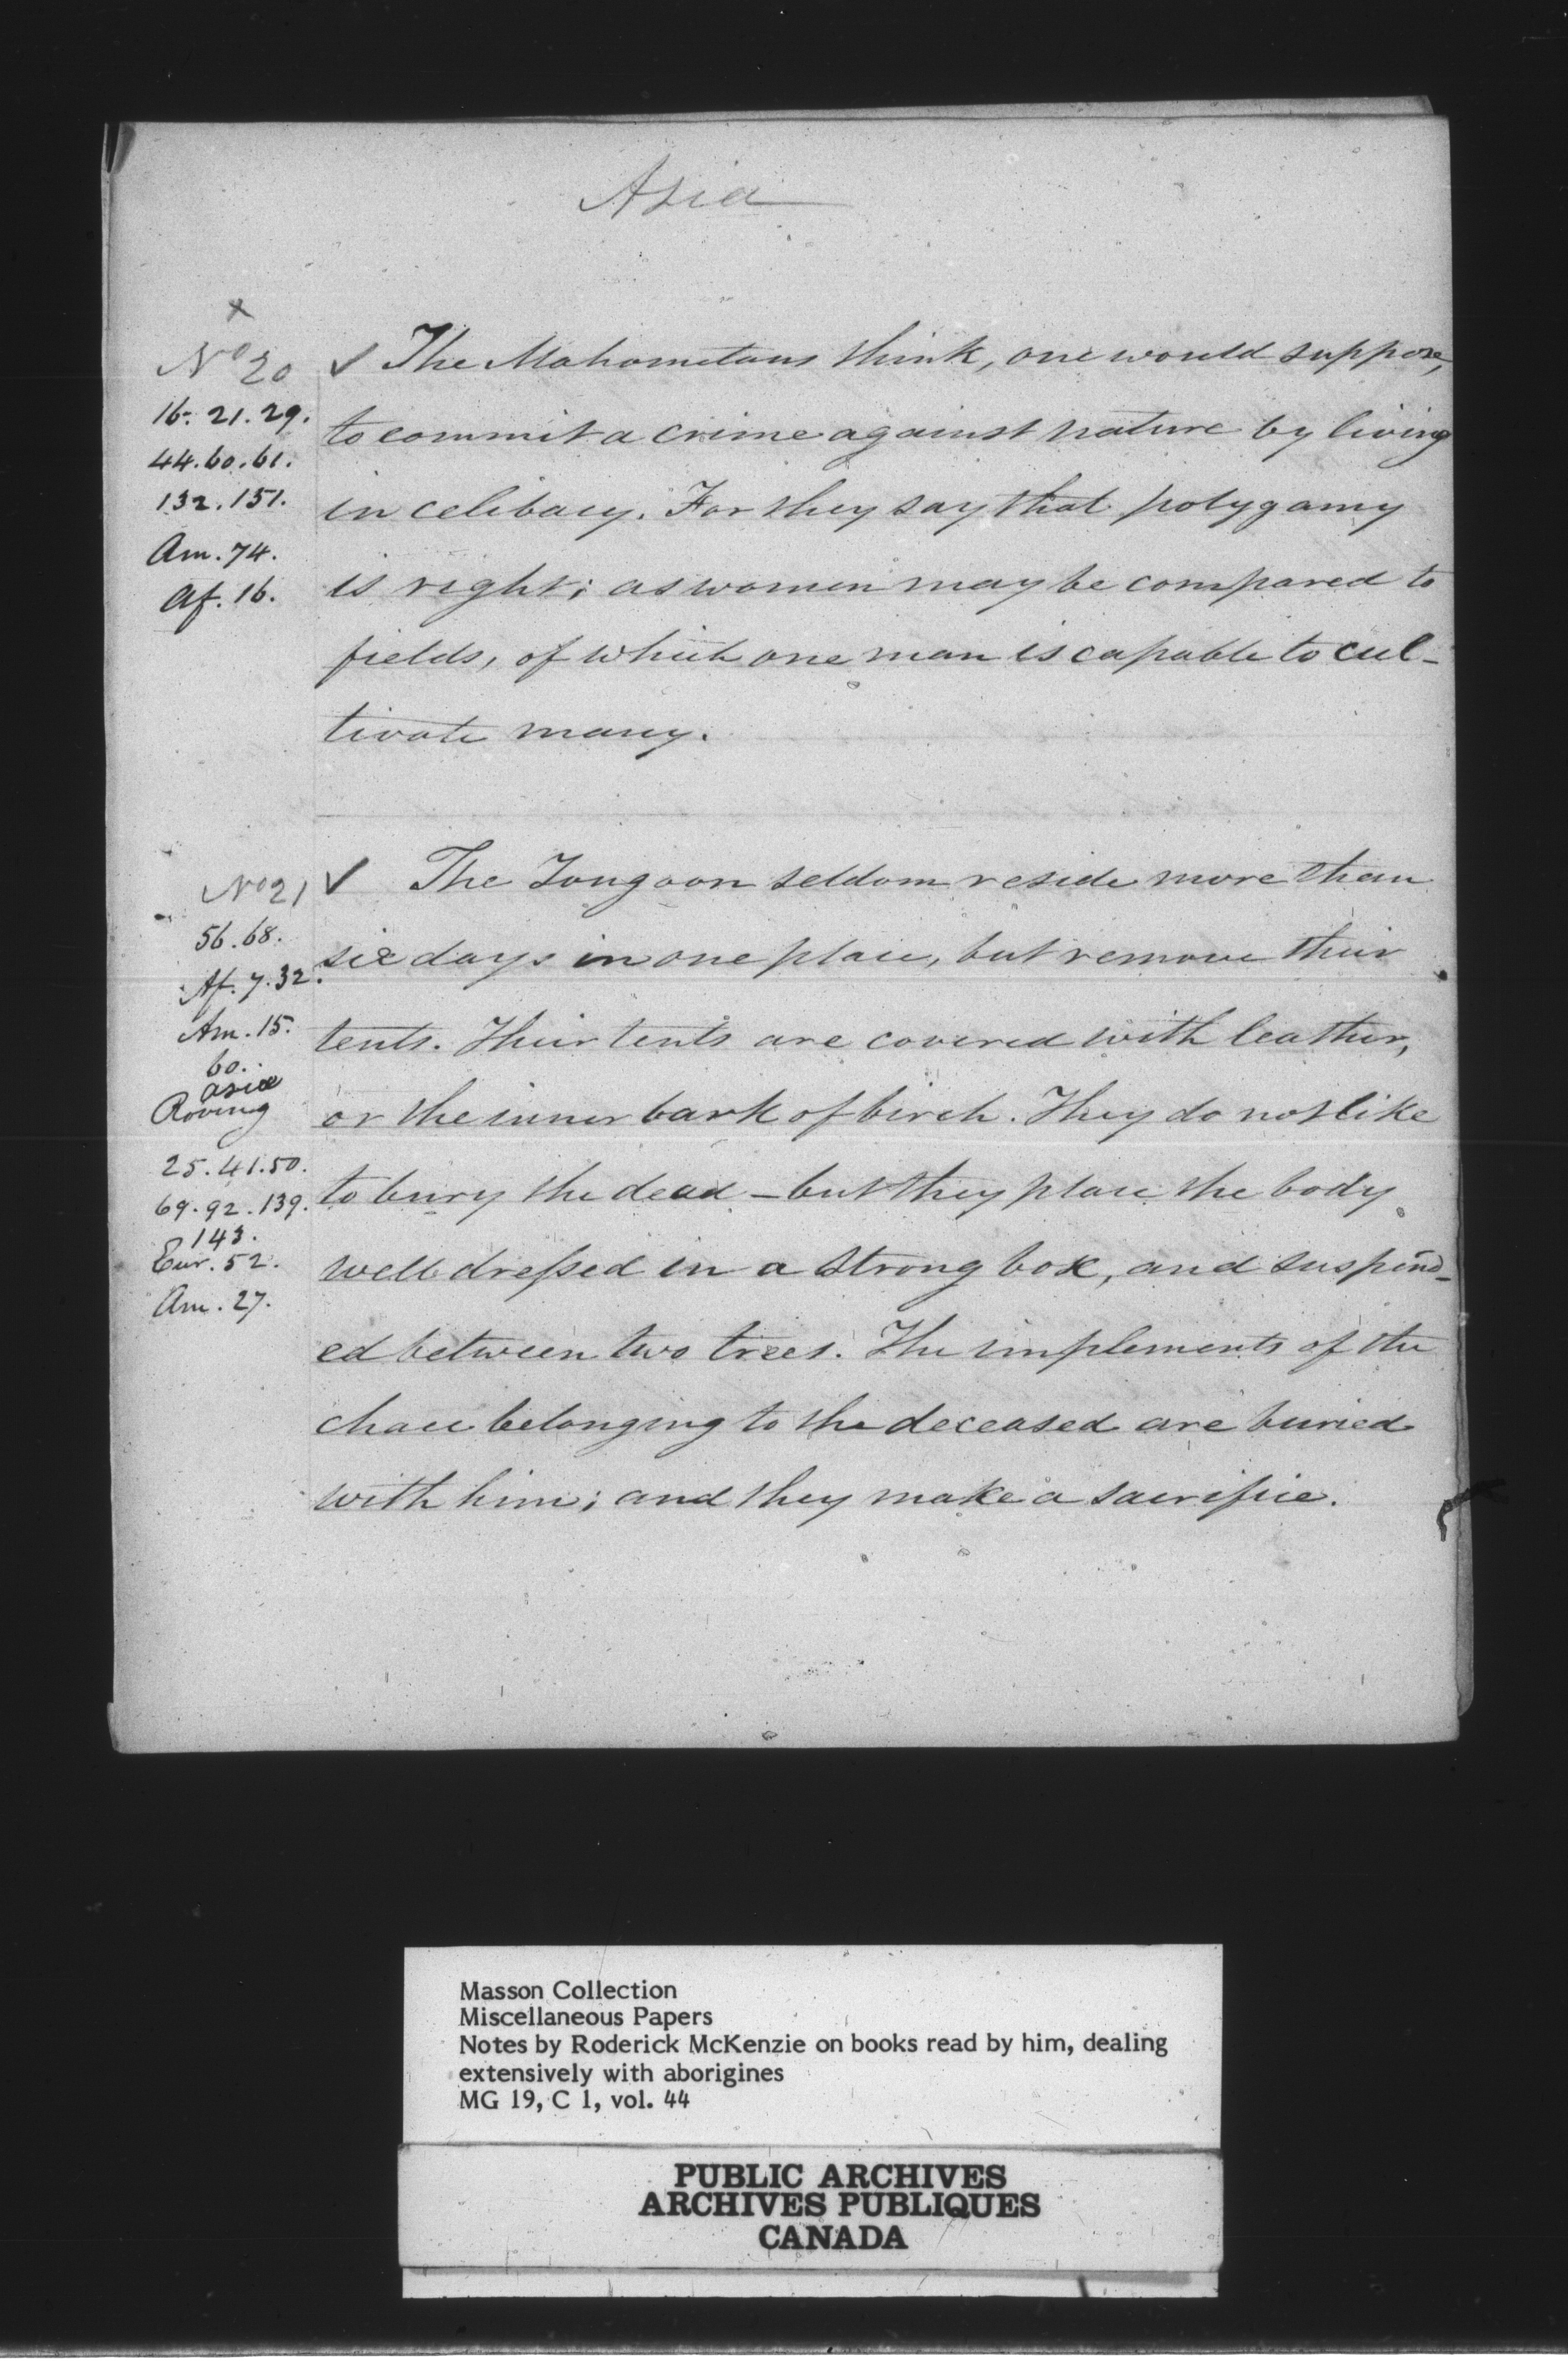 Asia
x
No 20
16. 21. 29.
44. 60. 61.
132. 151.
Am. 74.
Af. 16.
✓ The Mahometans think, one would suppose,
to commit a crime against nature by living
in celibacy. For they say that polygamy
is right; as women may be compared to
fields, of which one man is capable to cul-
tivate many.
No 21
56. 68.
Af. 7. 32.
Am. 15.
60.
asia
Roving
25. 41. 50.
69. 92. 139.
143.
Eur. 52.
Am. 27.
✓ The Tongoon seldom reside more than
six days in one place, but remove their
tents. Their tents are covered with leather,
or the inner bark of birch. They do not like
to bury the dead – but they place the body
well dressed in a strong box, and suspend-
ed between two trees. The implements of the
chace belonging to the deceased are buried
with him; and they make a sacrifice.
Masson Collection
Miscellaneous Papers
Notes by Roderick McKenzie on books read by him, dealing
extensively with aborigines
MG 19, C 1, vol. 44
PUBLIC ARCHIVES
ARCHIVES PUBLIQUES
CANADA